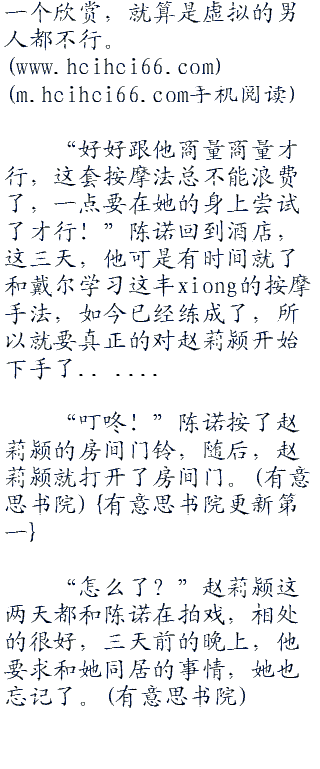 一个欣赏，就算是虚拟的男
人都不行。
(www.hcihci66.com)
(m.hcihci66.com手机阅读)
“好好跟他商量商量才
行，这套按摩法总不能浪费
了，一点要在她的身上尝试
了才行！”陈诺回到酒店，
这三天，他可是有时间就了
和戴尔学习这丰xiong的按摩
手法，如今已经练成了，所
以就要真正的对赵莉颖开始
下手了.......
“叮咚！”陈诺按了赵
莉颖的房间门铃，随后，赵
莉颖就打开了房间门。(有意
思书院){有意思书院更新第
一}
“怎么了？”赵莉颖这
两天都和陈诺在拍戏，相处
的很好，三天前的晚上，他
要求和她同居的事情，她也
忘记了。(有意思书院)